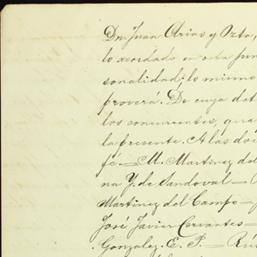 Dn. Juan Arias y Orta,
lo acordado en otra jun
sonalidad; lo mismo
proverá. De cuya det
los concurrentes, que
la presente. A las doce
fé — M. Martinez del
na Y. de Sandoval —
Martinez del Campo —
José Javier Cervantes —
Gonzalez. E. P. — Rú